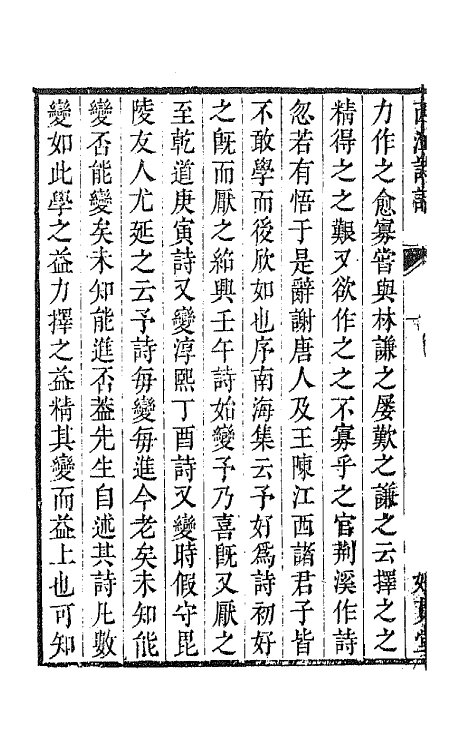 力作之愈寡嘗與林謙之屡歎之謙之云擇之之
精得之之艱又欲作之之不寡乎之官荆溪作詩
忽若有悟于是辭謝唐人及王陳江西諸君子皆
不敢學而後欣如也序南海集云予好爲詩初好
之旣而厭之紹興壬午詩始變予乃喜旣又厭之
至乾道庚寅詩又變淳熙丁酉詩又變時假守毘
陵友人尤延之云予詩每變每進今老矣未知能
變否能變矣未知能進否葢先生自述其詩凢數
變如此學之益力擇之益精其變而益上也可知